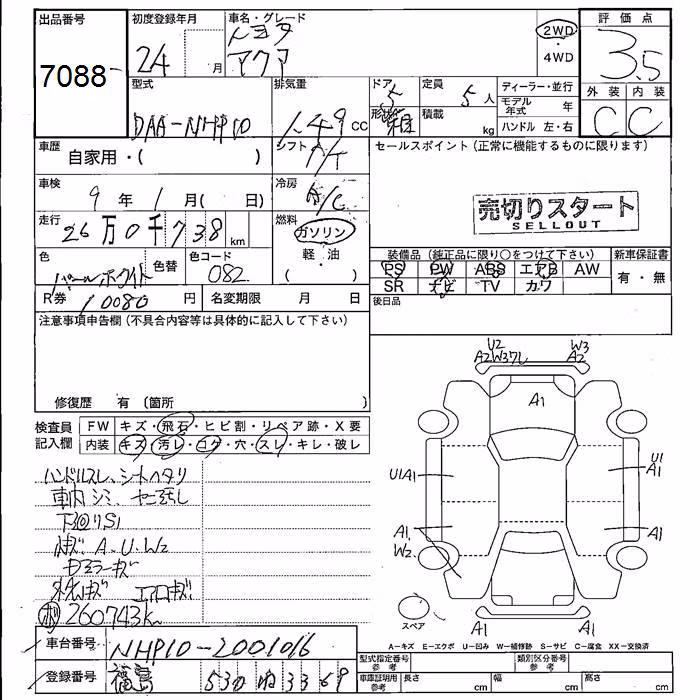 出品番号 7088
初度登録年月 24 月
車名・グレード トヨタ アクア
2WD ・ 4WD
評価点 3.5
外装 内装
C C
型式 DAA-NHP10
排気量 1.49 cc
ドア 5
形状
定員 5 人
積載 kg
ディーラー・並行
モデル年式 年
ハンドル 左・右
車歴 自家用・( )
シフト AT
セールスポイント(正常に機能するものに限ります)
売切りスタート
SELLOUT
車検 9 年 1 月( 日)
冷房 A/C
走行 26 万 0 千 738 km
燃料 ガソリン
軽・油
( )
色 パールホワイト
色替
色コード 082
装備品(純正品に限り○をつけて下さい)
新車保証書
PS PW ABS エアB AW
有・無
SR ナビ TV カワ
R券 10080 円
名変期限 月 日
後日品
注意事項申告欄(不具合内容等は具体的に記入して下さい)
修復歴 有(箇所 )
検査員記入欄
FW キズ・飛石・ヒビ割・リペア跡・X要
内装 キズ・汚レ・コゲ・穴・スレ・キレ・破レ
ハンドルスレ、シートヘタリ
車内シミ、ヤニ汚し
下廻りS1
A.U.W2
エアロキズ
260743k
U2
A2 W3 フし
W3
A2
A1
U1A1
U1
A1
A1
W2
A1
スペア
A-キズ E-エクボ U-凹み W-補修跡 S-サビ C-腐食 XX-交換済
車台番号 NHP10-2001016
登録番号 福島 530 ね 3369
型式指定番号 参考
類別区分番号 参考
車庫証明用 参考
長さ cm
幅 cm
高さ cm